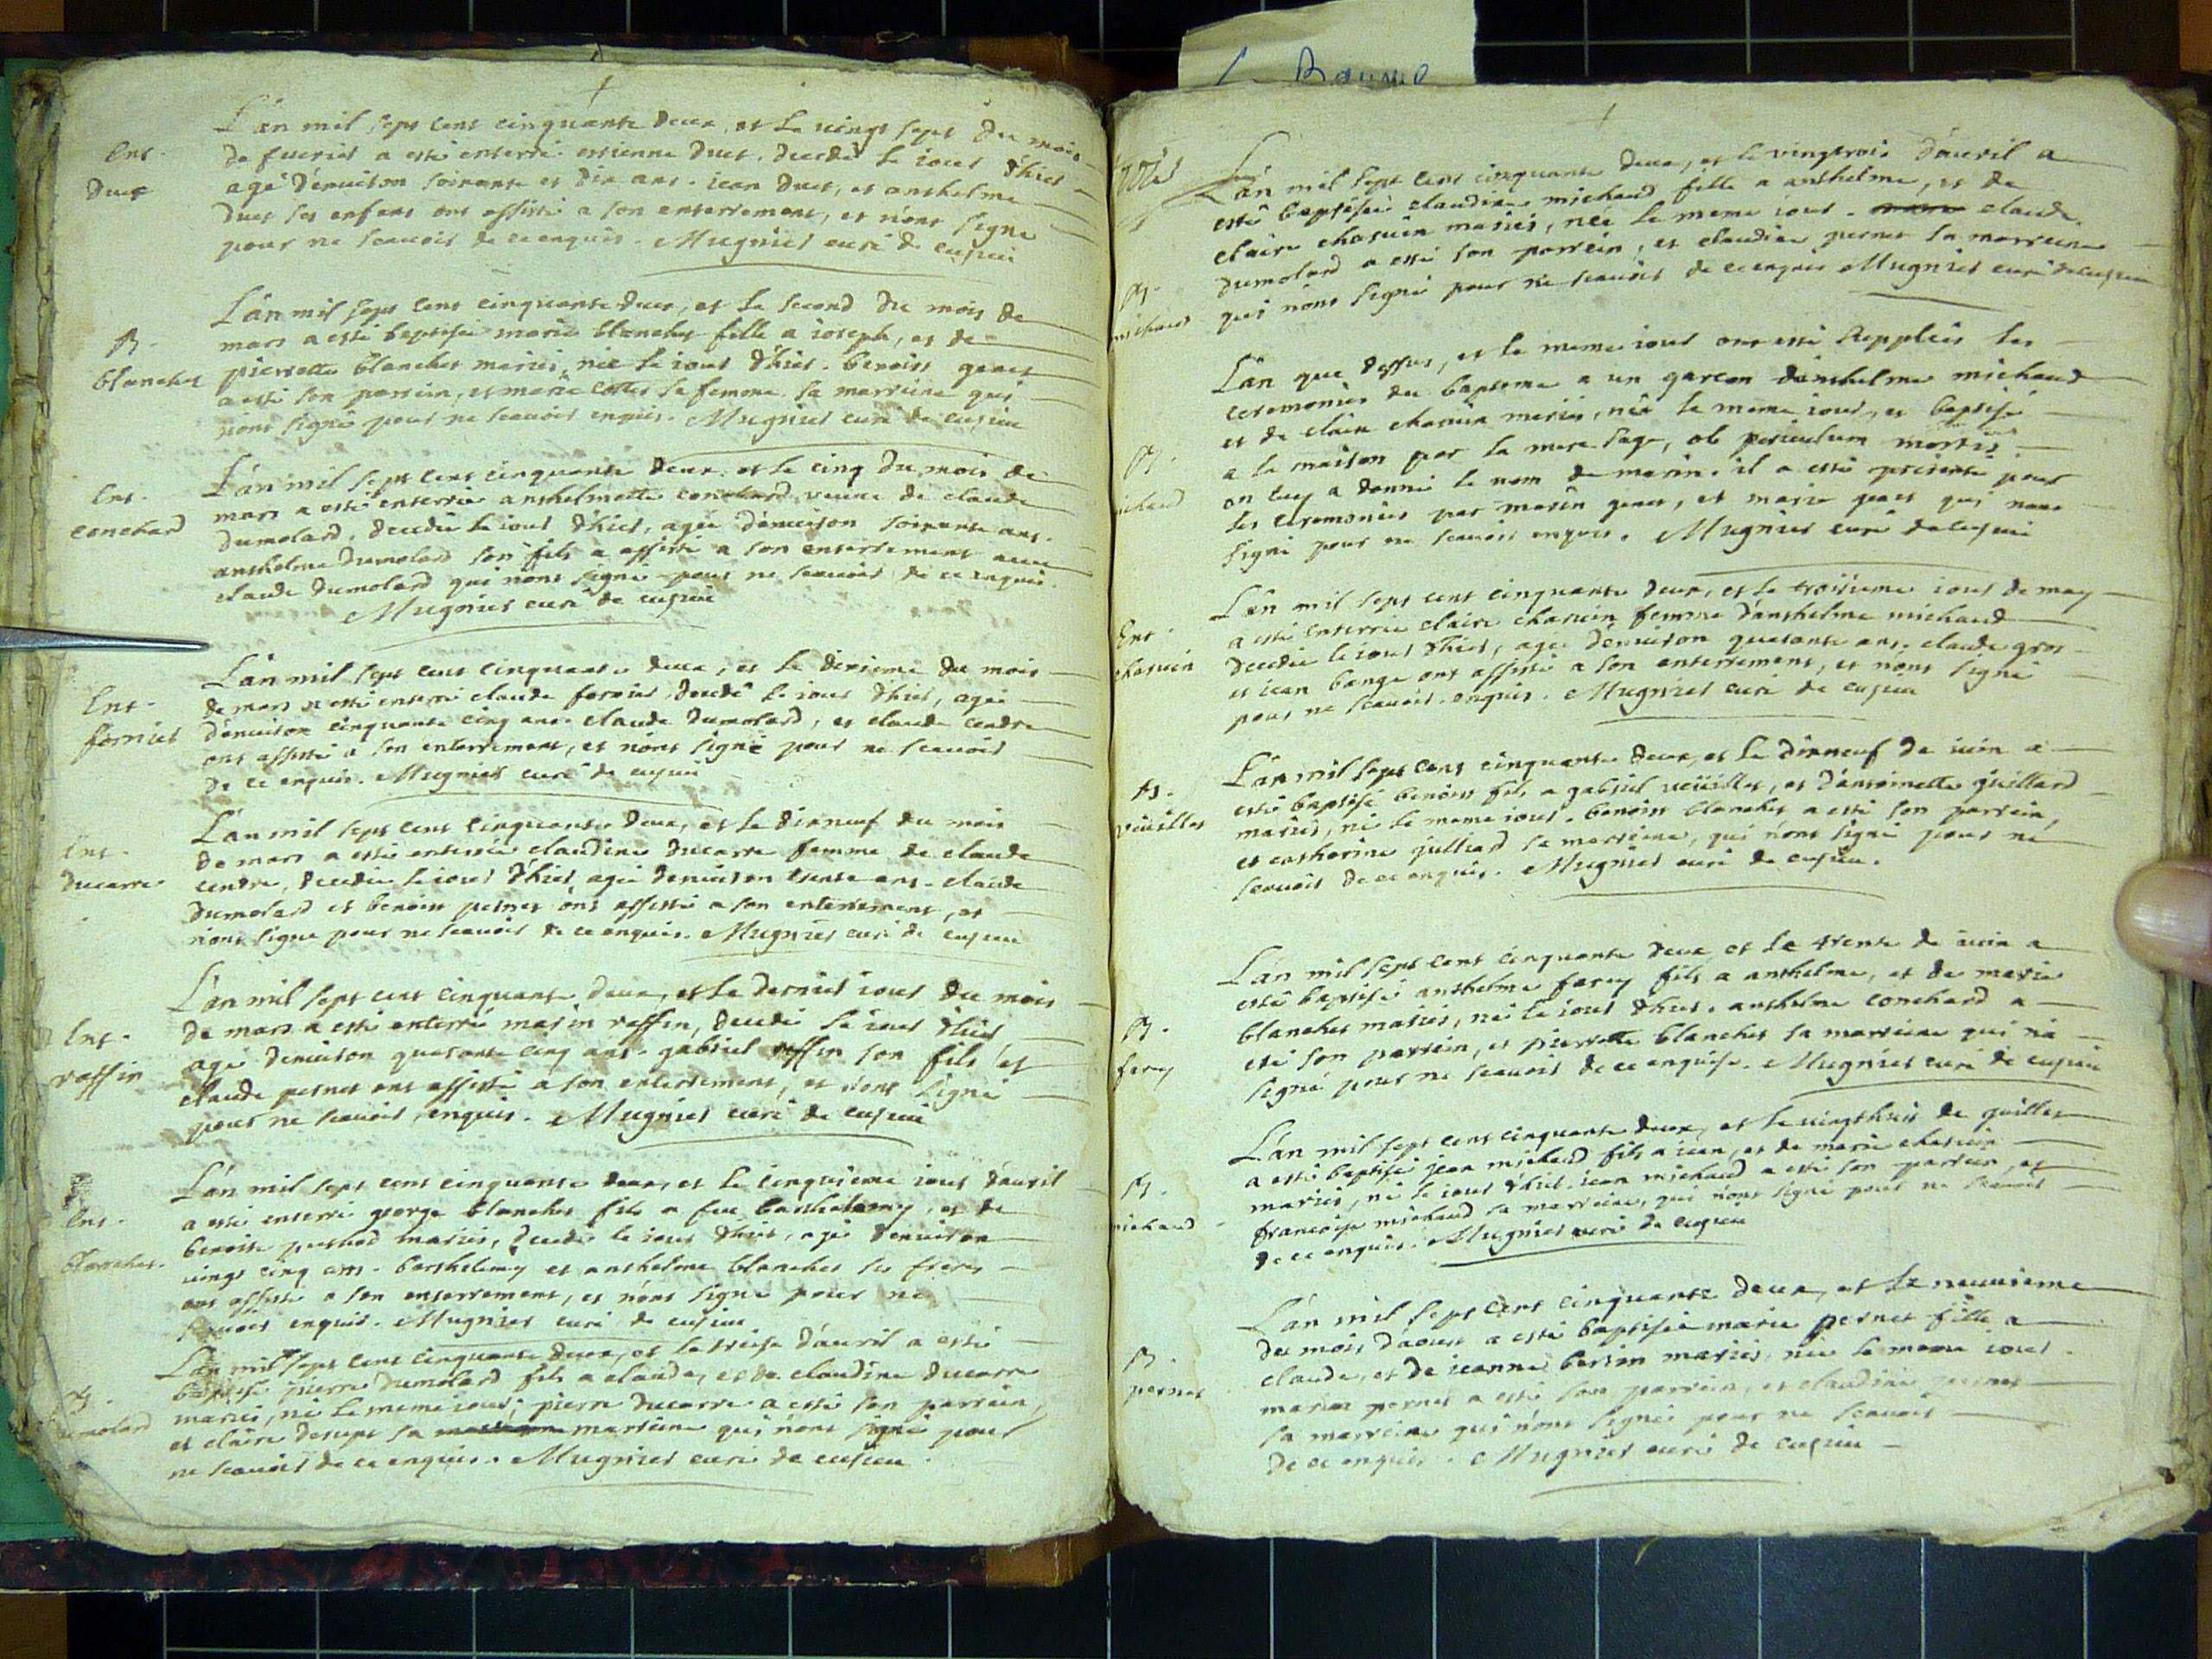 L'an mil sept cent cinquante deux, et le vingt sept du mois
Ent. de fuerier a esté enterré estienne duet, decedé le iour d'hier
duet agé d'enuiron soixante et dix ans. iean duet, et anthelme
duet ses enfans ont assisté a son enterrement, et n'ont signé
pour ne scauoir de ce enquis. Mugnier curé de cusieu
L'an mil sept cent cinquante deux, et le second du mois de
B. mars a esté baptisée marie blanchet fille a ioseph, et de
blanchet pierrette blanchet mariés, née le iour d'hier. benoist
a esté son parrein, et marie sa femme sa marreine qui
n'ont signé pour ne scauoir enquis. Mugnier curé de cusieu
Ent. L'an mil sept cent cinquante deux, et le cinq du mois de
conchard mars a esté enterrée anthelmette conchard veuue de claude
dumolard, decedée le iour d'hier, agée d'enuiron soixante ans.
anthelme dumolard son fils a assisté a son enterrement auec
claude dumolard qui n'ont signé pour ne scauoir de ce enquis.
Mugnier curé de cusieu
L'an mil sept cent cinquante deux, et le dixieme du mois
Ent. de mars a esté enterré claude fornier decedé le iour d'hier, agé
fornier d'enuiron cinquante cinq ans. claude dumolard, et claude cendre
ont assisté a son enterrement, et n'ont signé pour ne scauoir
de ce enquis. Mugnier curé de cusieu
L'an mil sept cent cinquante deux, et le dixneuf du mois
Ent. de mars a esté enterrée claudine ducarre femme de claude
ducarre cendre, decedée le iour d'hier, agée d'enuiron trente ans. claude
dumolard et benoist pernet ont assisté a son enterrement, et
n'ont signé pour ne scauoir de ce enquis. Mugnier curé de cusieu
L'an mil sept cent cinquante deux, et le dernier iour du mois
Ent. de mars a esté enterré marin raffin, decedé le iour d'hier
raffin agé d'enuiron quarante cinq ans. gabriel raffin son fils et
claude pernet ont assisté a son enterrement, et n'ont signé
pour ne scauoir enquis. Mugnier curé de cusieu
L'an mil sept cent cinquante deux, et le cinquieme iour d'auril
Ent. a esté enterré george blanchet fils a feu barthelemy, et de
blanchet. benoite mariés, decedé le iour d'hier, agé d'enuiron
vingt cinq ans. barthelemy et anthelme blanchet ses freres
ont assisté a son enterrement, et n'ont signé pour ne
scauoir enquis. Mugnier curé de cusieu
L'an mil sept cent cinquante deux, et le treise d'auril a esté
B. baptisé pierre dumolard fils a claude, et de claudine ducarre
dumolard mariés, né le meme iour, pierre ducarre a esté son parrein,
et claire sa marreine qui n'ont signé pour
ne scauoir de ce enquis. Mugnier curé de cusieu.
L'an mil sept cent cinquante deux, et le vingtrois d'auril a
esté baptisée claudine michaud fille a anthelme, et de
claire charuin mariés, née le meme iour. claude
B. dumolard a esté son parrein, et claudine pernet sa marreine
michaud qui n'ont signé pour ne scauoir de ce enquis Mugnier curé de cusieu
L'an que dessus, et le meme iour ont esté suppléés les
ceremonies du baptome a un garcon d'anthelme michaud
B. et de claire charuin mariés, né le meme iour, et baptisé
michaud a la maison par la mere sage, ob periculum mortis
on luy a donné le nom de marin. il a esté presenté pour
les ceremonies par marin, et marie qui n'ont
signé pour ne scauoir enquis. Mugnier curé de cusieu
L'an mil sept cent cinquante deux, et le troisieme iour de may
Ent. a esté enterrée claire charuin femme d'anthelme michaud
charuin decedée le iour d'hier, agée d'enuiron quarante ans. claude gros
et iean bange ont assisté a son enterrement, et n'ont signé
pour ne scauoir enquis. Mugnier curé de cusieu
B. L'an mil sept cent cinquante deux, et le dixneuf de iuin a
veüillet esté baptisé benoist fils a gabriel veüillet, et d'antoinette juillard
mariés, né le meme iour. benoist blanchet a esté son parrein,
et catherine julliard sa marreine, qui n'ont signé pour ne
scauoir de ce enquis. Mugnier curé de cusieu.
L'an mil sept cent cinquante deux et le trente de iuin a
esté baptisé anthelme farcy fils a anthelme, et de marie
B. blanchet mariés, né le iour d'hier. anthelme conchard a
farcy eté son parrein, et pierrette blanchet sa marreine qui n'a
signé pour ne scauoir de ce enquise. Mugnier curé de cusieu
L'an mil sept cent cinquante deux, et le vingthuit de juillet
B. a esté baptisé jean michaud fils a iean, et de marie charuin
michaud mariés, né le iour d'hier. iean michaud a esté son parrein, et
francoise michaud sa marreine, qui n'ont signé pour ne scauoir
de ce enquis. Mugnier curé de cusieu
L'an mil sept cent cinquante deux, et le neuuieme
B. du mois d'aoust a esté baptisée marie pernet fille a
pernet claude, et de ieanne mariés, née le meme iour.
marin pernet a esté son parrein, et claudine pernet
sa marreine qui n'ont signé pour ne scauoir
de ce enquis. Mugnier curé de cusieu